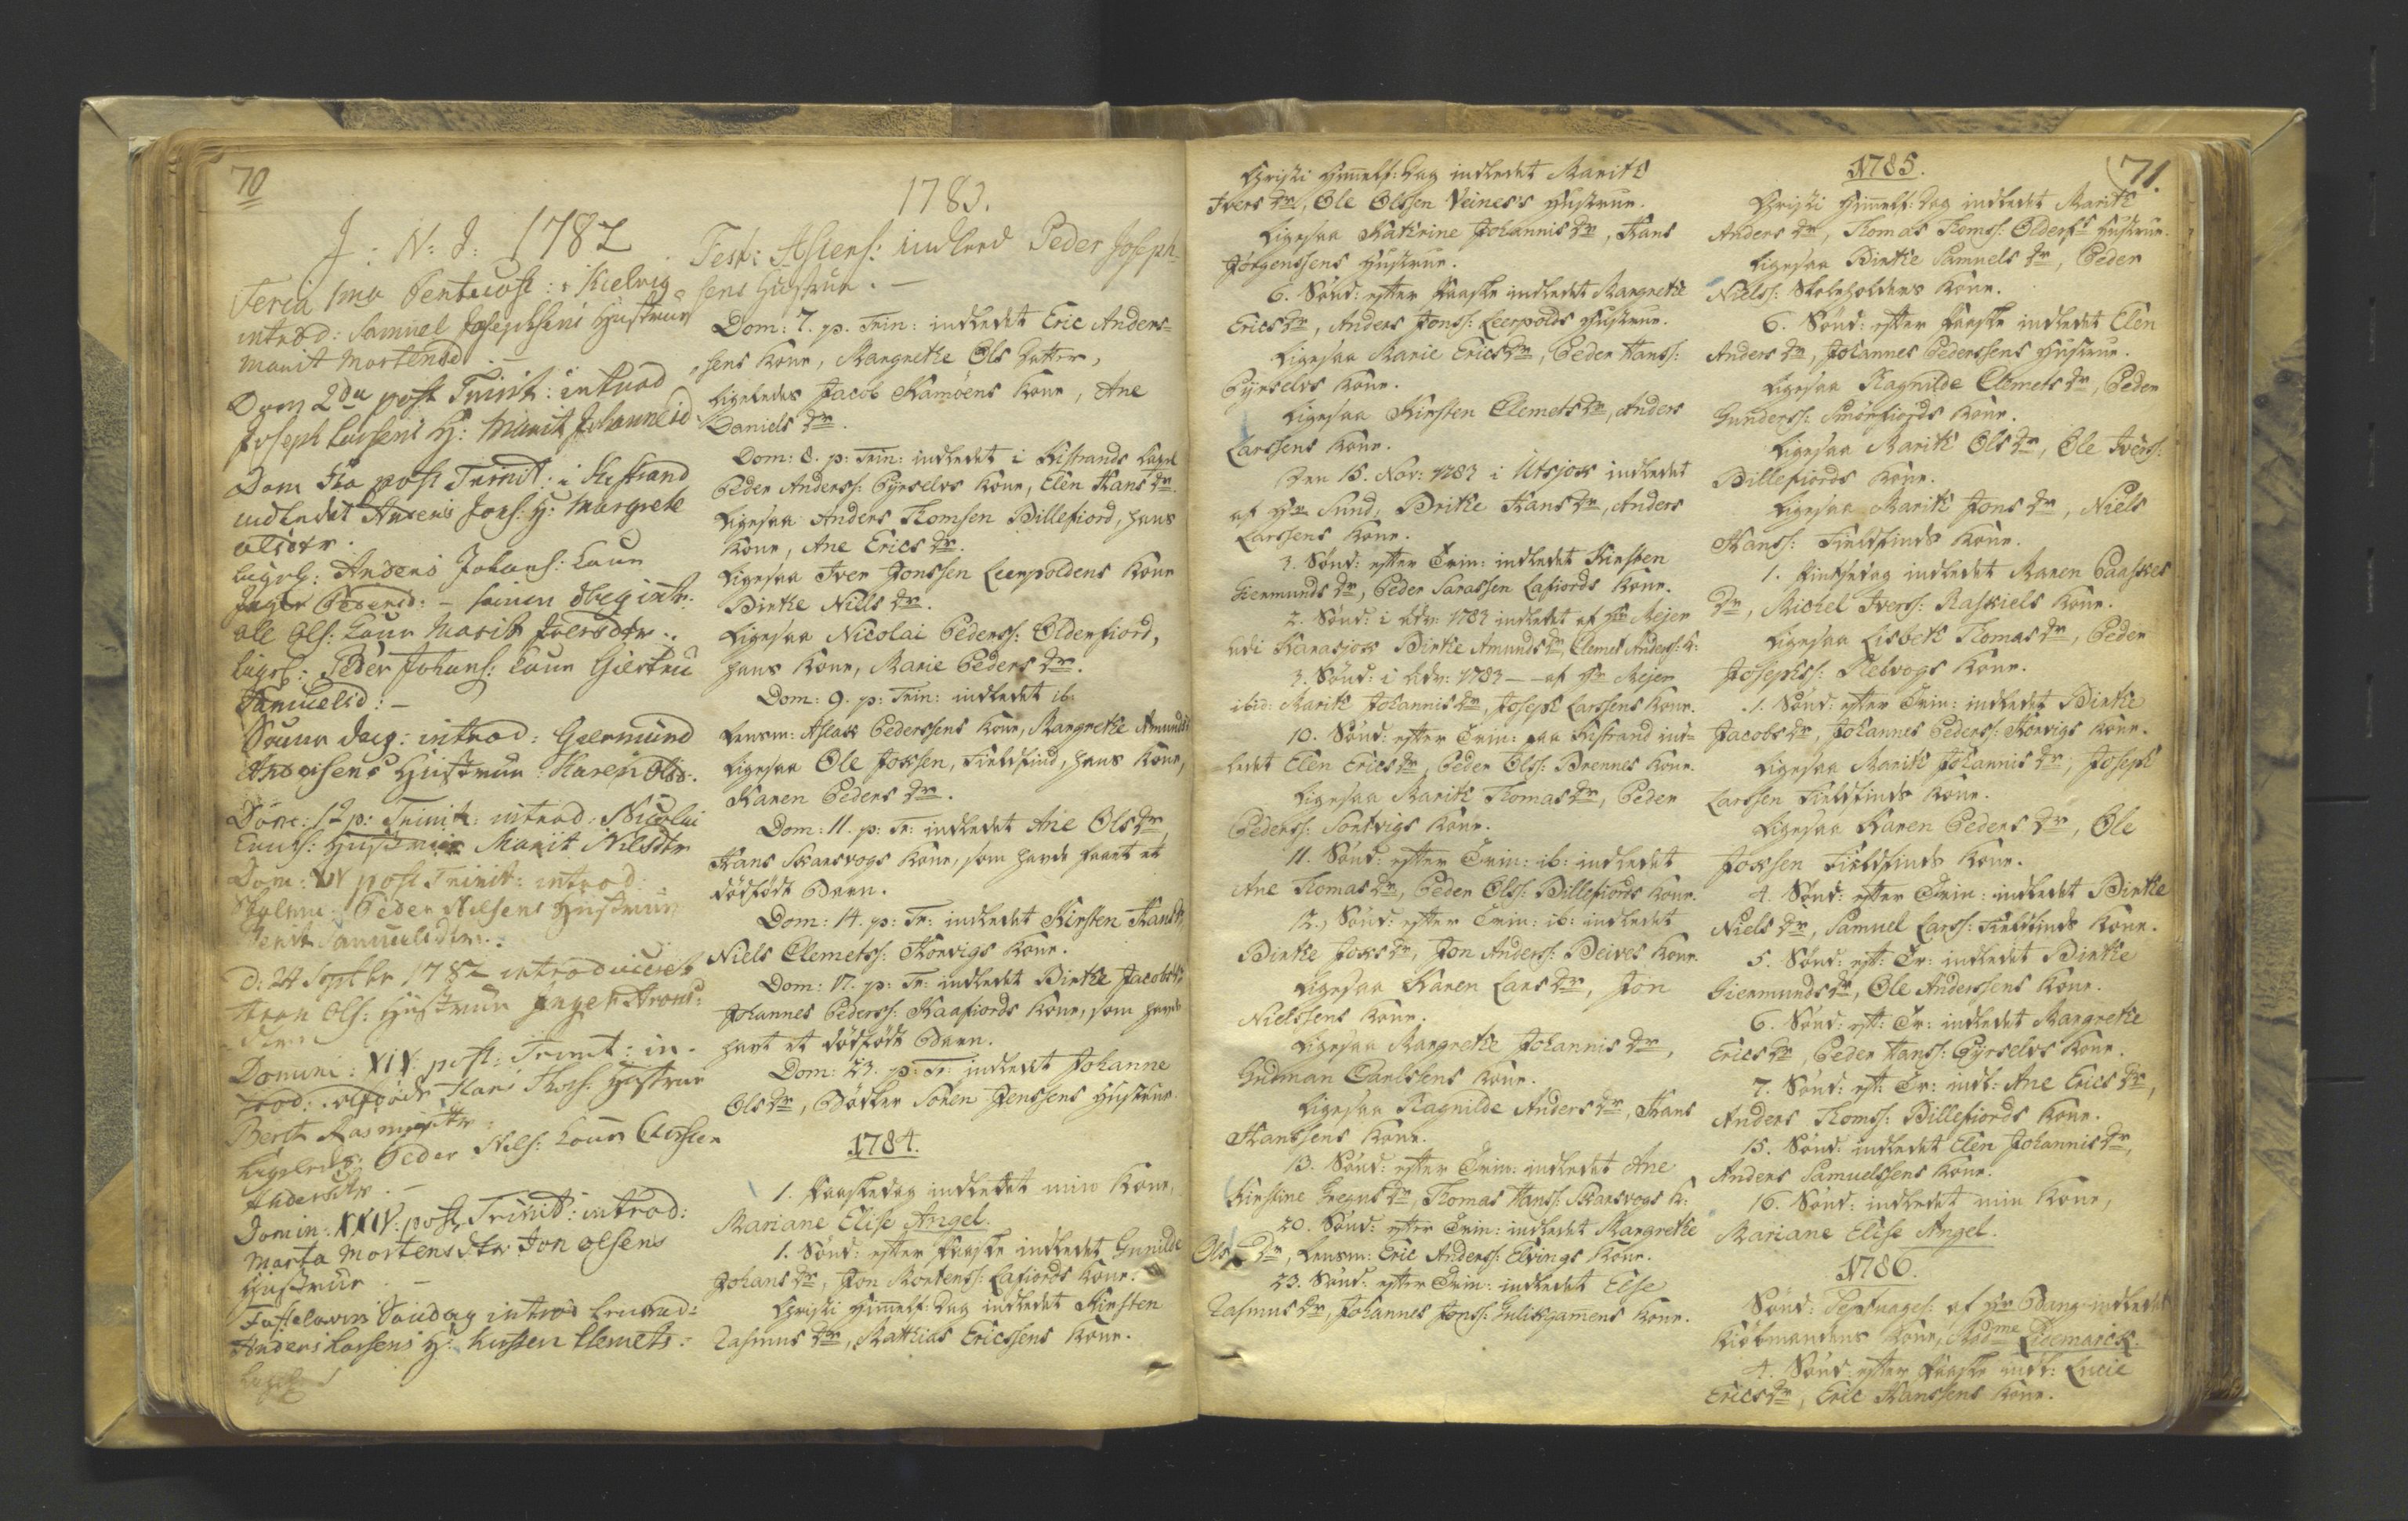 70
J: N: J: 1782
Feria 1ma Pentecost: i Kielvig
introd: Samuel Josephsens Hustrue
Marit Mortensd. –
Dom 2da post Trinit: introd
Joseph Larsens H: Marit Johannesd
Dom post Trinit: i Kistrand
indledet Anders Jons: H: Margrete
Olsdtr.
ligel: Anders Johans: Koun
Inger Pedersd: – samme dag intr:
Ole Ols: Koun Marit Iversdtr.
ligel: Peder Johans: Koun Giertru
Samuelsd: –
Samme dag: introd: Geermund
Hustrue: Karen Olsd.
Dom: 12 p: Trinit: introd: Nicolai
Hustrue Marit Nilsdtr
Dom: XV post Trinit: introd:
Peder Nilsens Hustrue
Berit Samuelsdtr.
d: 24 Septbr 1782 introduceret
Aron Ols: Hustrue Inger Arons:
dtr
Domini: XIX post: Trinit: in-
trod: Hustrue
Berit Rasmusdtr:
ligeledes: Peder Nils: Koun Kirsten
Andersdtr. –
Domin: XXIV: post Trinit: introd:
Marta Mortensdtr Jon Olsens
Hustrue. –
Fastelavns Søndag introd
Anders Larsens H: Kirsten Clemets:
1783.
Fest: indleed Peder Joseph-
sens Hustrue. –
Dom: 7. p. Trin: indledet Eric Anders-
sens Kone, Margrethe Ols Datter,
ligeledes Jacob Kamöens Kone, Ane
Daniels Dr.
Dom: 8. p: Trin: indledet i Kistrands Capel
Peder Anderss: Pÿrselvs Kone, Elen Hans Dr.
Ligesaa Anders Thomsen Billefiord, hans
Kone, Ane Erics Dr.
Ligesaa Iver Jonssen Leerpoldens Kone
Birthe Nills Dr.
Ligesaa Nicolai Pederss: Olderfiord,
hans Kone, Marie Peders Dr.
Dom: 9. p: Trin: indledet ib:
Lensm: Aslak Pederssens Kone, Margrethe Amunds
Ligesaa Ole Joksen, Fieldfind, hans Kone,
Karen Peders Dr.
Dom: 11. p: Tr: indledet Ane Ols Dr,
Hans Skarsvogs Kone, som havde faaet et
dödfödt Barn.
Dom: 14. p: Tr: indledet Kirsten Hans Dr,
Niels Clemetss: Kaavigs Kone.
Dom: 17. p: Tr: indledet Birthe Jacobs Dr,
Johannes Pederss: Kaafiords Kone, som havde
havt et dödfödt Barn.
Dom: 23. p: Tr: indledet Johanne
Ols Dr, Bödker Sören Jenssens Hustrue.
1784.
1. Paaskedag indledet min Kone,
Mariane Elise Angel.
1. Sönd: efter Paaske indledet Gunilde
Johans Dr, Jon Mortenss: Lafiords Kone.
Christi Himmelf: Dag indledet Kirsten
Rasmus Dr, Matthias Ericssens Kone.
Christi Himmelf: Dag indledet Marith
Ivers Dr, Ole Olssen Veines's Hustrue.
Ligesaa Kathrine Johannis Dr, Hans
Jörgenssens Hustrue.
6. Sönd: efter Paaske indledet Margrethe
Erics Dr, Anders Jonss: Leerpolds Hustrue.
Ligesaa Marie Erics Dr, Peder Hanss:
Pÿrselvs Kone.
Ligesaa Kirsten Clemets Dr, Anders
Larssens Kone.
Den 15. Nov: 1783 i Utsjok indledet
af Hr Lund, Brithe Hans Dr, Anders
Larssens Kone.
3. Sönd: efter Trin: indledet Kirsten
Giermunds Dr, Peder Sarassen Lafiords Kone.
2. Sönd: i Adv: 1783 indledet af Hr Mejer
udi Karasjok Birthe Amunds Dr, Clemet Anderss: K:
3. Sönd: i Adv: 1783 – – af Hr Mejer
ibid: Marith Johannis Dr, Joseph Larssens Kone.
10. Sönd: efter Trin: paa Kistrand ind-
ledet Elen Erics Dr, Peder Olss: Brennes Kone.
Ligesaa Marith Thomas Dr, Peder
Pederss: Sortvigs Kone.
11. Sönd: efter Trin: ib: indledet
Ane Thomas Dr, Peder Olss: Billefiords Kone.
12. Sönd: efter Trin: ib: indledet
Birthe Joks Dr, Jon Anderss: Beives Kone.
Ligesaa Karen Lars Dr, Jon
Nielssens Kone.
Ligesaa Margrethe Johannis Dr,
Gudman Carlssens Kone.
Ligesaa Ragnilde Anders Dr, Hans
Hanssens Kone.
13. Sönd: efter Trin: indledet Ane
Kirstine Gregus Dr, Thomas Hanss: Skarsvogs K:
20. Sönd: efter Trin: indledet Margrethe
Ols Dr, Lensm: Eric Anderss: Elvings Kone.
23. Sönd: efter Trin: indledet Else
Rasmus Dr, Johannes Jonss: Gulikgammens Kone.
71.
1785.
Christi Himmelf: Dag indledet Marith
Anders Dr, Thomas Thomss: Olderfs Hustrue.
Ligesaa Birthe Samuels Dr, Peder
Nielss: Skoleholders Kone.
6. Sönd: efter Paaske indledet Elen
Anders Dr, Johannes Pederssens Hustrue.
Ligesaa Ragnilde Clemets Dr, Peder
Gunderss: Smörfiords Kone.
Ligesaa Marith Ols Dr, Ole Iverss:
Billefiords Kone.
Ligesaa Marith Jons Dr, Niels
Hanss: Fieldfinds Kone.
1. Pintsedag indledet Maren Paaskes
Dr, Michel Iverss: Raskiels Kone.
Ligesaa Lisbeth Thomas Dr, Peder
Josephss: Kone.
1. Sönd: efter Trin: indledet Birthe
Jacobs Dr, Johannes Pederss: Kone.
Ligesaa Marith Johannis Dr, Joseph
Larssen Fieldfinds Kone.
Ligesaa Karen Peders Dr, Ole
Joksen Fieldfinds Kone.
4. Sönd: efter Trin: indledet Birthe
Niels Dr, Samuel Larss: Fieldfinds Kone.
5. Sönd: eft: Tr: indledet Birthe
Giermunds Dr, Ole Anderssens Kone.
6. Sönd: eft: Tr: indledet Margrethe
Erics Dr, Peder Hanss: Pÿrselvs Kone.
7. Sönd: eft: Tr: indl: Ane Erics Dr,
Anders Thomss: Billefiords Kone.
15. Sönd: indledet Elen Johannis Dr,
Anders Samuelssens Kone.
16. Sönd: indledet min Kone,
Mariane Elise Angel.
1786.
Sönd: Septuages: af Hr indledet
Kiöbmandens Kone, Madme Lidemarck.
4. Sönd: efter Paaske indl: Lucie
Erics Dr, Eric Hanssens Kone.